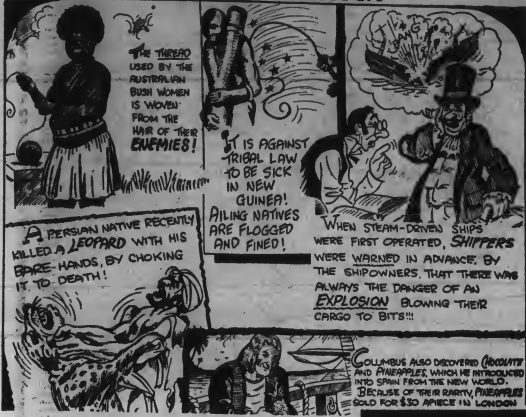 THE THREAD
USED BY THE
AUSTRALIAN
BUSH WOMEN
IS WOVEN
FROM THE
HAIR OF THEIR
ENEMIES!
IT IS AGAINST
TRIBAL LAW
TO BE SICK
IN NEW
GUINEA!
AILING NATIVES
ARE FLOGGED
AND FINED!
BANG
WHEN STEAM-DRIVEN SHIPS
WERE FIRST OPERATED, SHIPPERS
WERE WARNED IN ADVANCE, BY
THE SHIPOWNERS, THAT THERE WAS
ALWAYS THE DANGER OF AN
EXPLOSION BLOWING THEIR
CARGO TO BITS!!!
A PERSIAN NATIVE RECENTLY
KILLED A LEOPARD WITH HIS
BARE-HANDS, BY CHOKING
IT TO DEATH!
COLUMBUS ALSO DISCOVERED CHOCOLATE
AND PINEAPPLES, WHICH HE INTRODUCED
INTO SPAIN FROM THE NEW WORLD.
BECAUSE OF THEIR RARITY, PINEAPPLES
SOLD FOR $30 APIECE IN LONDON